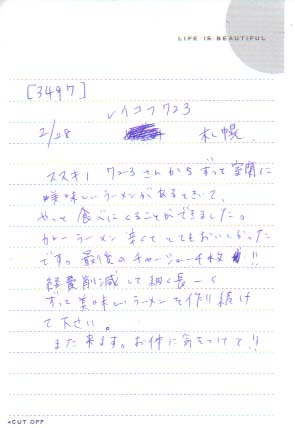 LIFE IS BEAUTIFUL
[3497]
レイコフ723
2/28 札幌.
ススキノ 723さんからずっと室蘭に
美味しいラーメンがあるときいて、
やっと食べにくることができました。
カレーラーメン 辛くて とてもおいしかった
です。最後のチャーシュー4枚!!
経費削減して細く長ーく
ずって美味しいラーメンを作り続け
て下さい。
また来ます。お体に気をつけて!!
◂CUT OFF